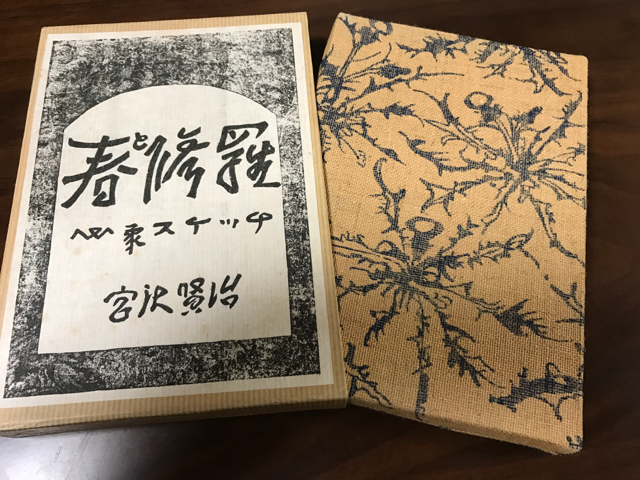 春と修羅
心象スケッチ
宮沢賢治